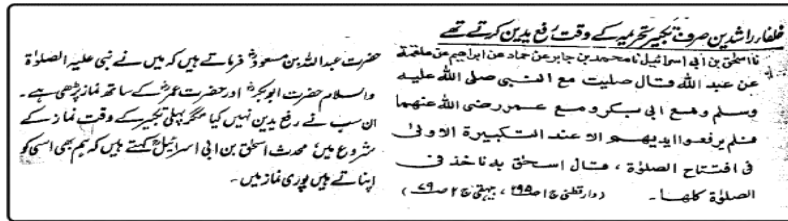 خلفاء راشدین صرف تکبیر تحریمہ کے وقت رفع یدین کرتے تھے
نا اسحٰق بن ابی اسرائیل نا محمد بن جابر عن حماد عن ابراھیم عن علقمة
عن عبد اللہ قال صلیت مع النبی صلی اللہ علیہ
وسلم ومع ابی بکر و مع عمر رضی اللہ عنهما
فلم یرفعوا ایدیهم الا عند التکبیرة الاولیٰ
فی افتتاح الصلوٰة ، قال اسحٰق بہ ناخذ فی
الصلوٰة کلها ۔ (دار قطنی ج ۱ ص ۲۹۵ ، بیہقی ج ۲ ص ۷۹)
حضرت عبداللہ بن مسعودؓ فرماتے ہیں کہ میں نے نبی علیہ الصلوٰة
والسلام حضرت ابوبکرؓ اور حضرت عمرؓ کے ساتھ نماز پڑھی ہے ۔
ان سب نے رفع یدین نہیں کیا مگر پہلی تکبیر کے وقت نماز کے
شروع میں ، محدث اسحٰق بن ابی اسرائیلؒ کہتے ہیں کہ ہم بھی اسی کو
اپناتے ہیں پوری نماز میں ۔